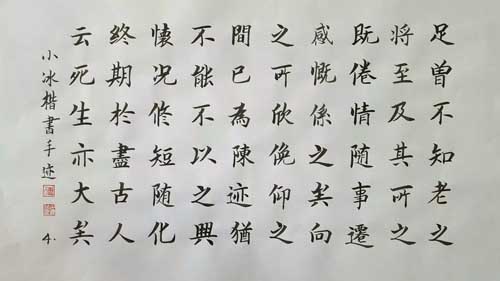 足曾不知老之
将至及其所之
既倦情随事遷
感慨係之矣向
之所欣俛仰之
間已為陳迹猶
不能不以之興
懐况修短随化
終期於盡古人
云死生亦大矣
小冰楷書手迹
4.